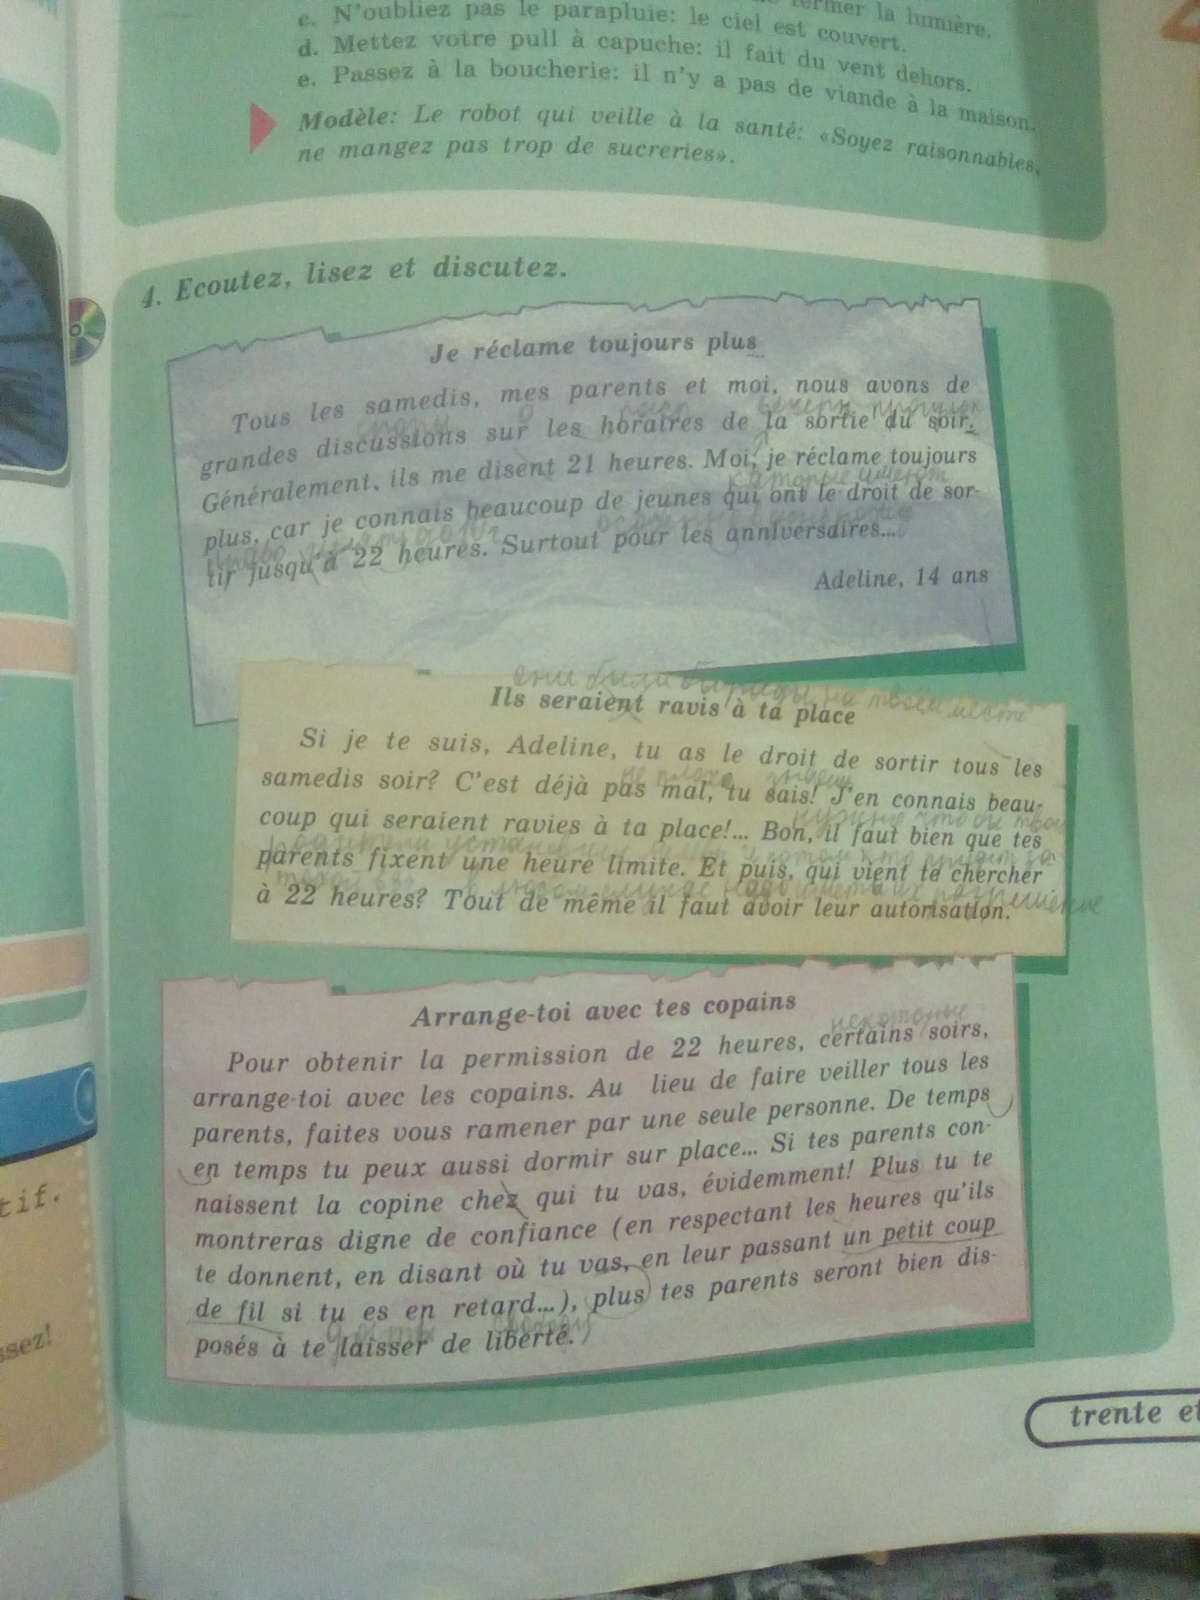 fermer la lumière.
c. N'oubliez pas le parapluie: le ciel est couvert.
d. Mettez votre pull à capuche: il fait du vent dehors.
e. Passez à la boucherie: il n'y a pas de viande à la maison.
Modèle: Le robot qui veille à la santé: «Soyez raisonnables,
ne mangez pas trop de sucreries».
4. Ecoutez, lisez et discutez.
Je réclame toujours plus
Tous les samedis, mes parents et moi, nous avons de
grandes discussions sur les horaires de la sortie du soir.
Généralement, ils me disent 21 heures. Moi, je réclame toujours
которые имеют
plus, car je connais beaucoup de jeunes qui ont le droit de sor-
tir jusqu'à 22 heures. Surtout pour les anniversaires...
Adeline, 14 ans
они были бы рады на твоем месте
Ils seraient ravis à ta place
Si je te suis, Adeline, tu as le droit de sortir tous les
samedis soir? C'est déjà pas mal, tu sais! J'en connais beau-
coup qui seraient ravies à ta place!... Bon, il faut bien que tes
parents fixent une heure limite. Et puis, qui vient te chercher
à 22 heures? Tout de même il faut avoir leur autorisation.
Arrange-toi avec tes copains
некоторые
Pour obtenir la permission de 22 heures, certains soirs,
arrange-toi avec les copains. Au lieu de faire veiller tous les
parents, faites vous ramener par une seule personne. De temps
en temps tu peux aussi dormir sur place... Si tes parents con-
naissent la copine chez qui tu vas, évidemment! Plus tu te
montreras digne de confiance (en respectant les heures qu'ils
te donnent, en disant où tu vas, en leur passant un petit coup
de fil si tu es en retard...), plus tes parents seront bien dis-
posés à te laisser de liberté.
trente et
tif.
ssez!